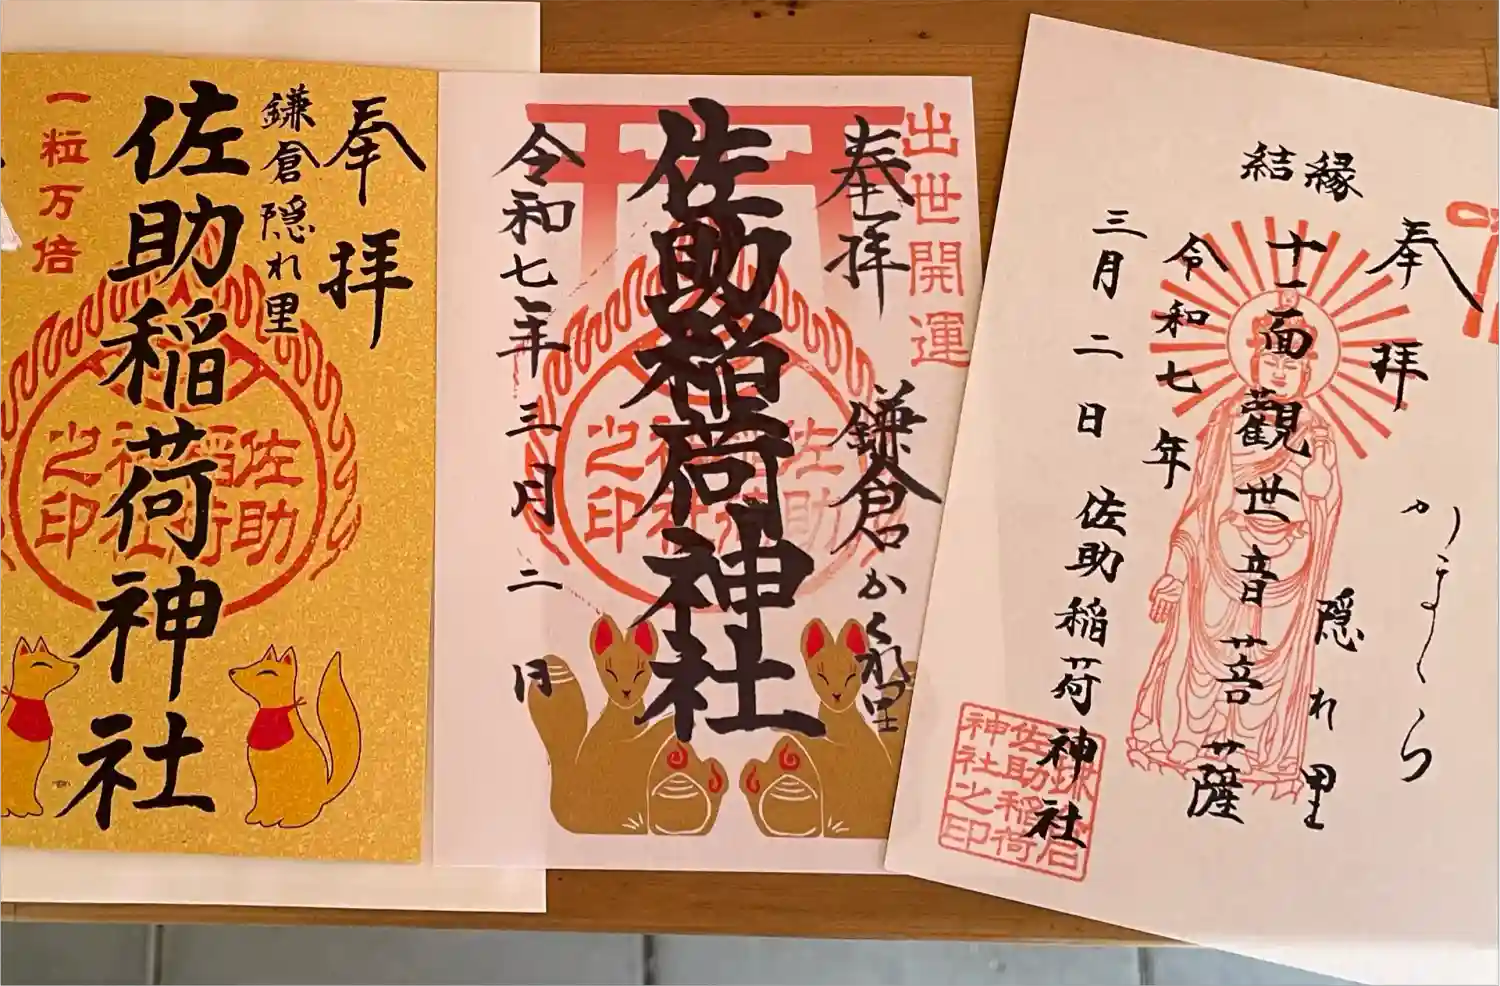 奉拝
鎌倉隠れ里
佐助稲荷神社
一粒万倍
佐助稲荷神社之印
出世開運
奉拝
鎌倉かくれ里
佐助稲荷神社
令和七年三月二日
佐助稲荷神社之印
奉拝
かまくら
隠れ里
縁結
十一面観世音菩薩
令和七年
三月二日 佐助稲荷神社
佐助稲荷神社之印